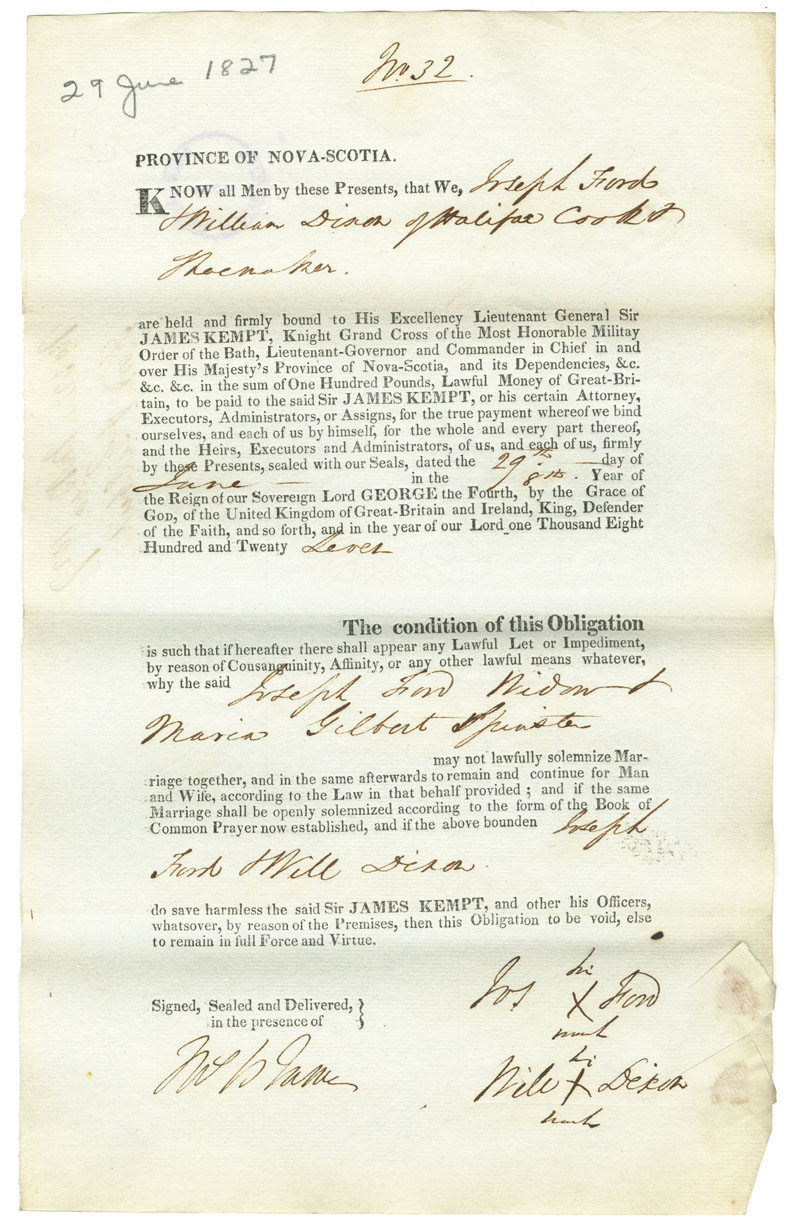 29 June 1827
No 32.
PROVINCE OF NOVA-SCOTIA.
KNOW all Men by these Presents, that We, Joseph Ford
& William Dixon of Halifax Cook &
Shoemaker.
are held and firmly bound to His Excellency Lieutenant General Sir
JAMES KEMPT, Knight Grand Cross of the Most Honorable Militay
Order of the Bath, Lieutenant-Governor and Commander in Chief in and
over His Majesty's Province of Nova-Scotia, and its Dependencies, &c.
&c. &c. in the sum of One Hundred Pounds, Lawful Money of Great-Bri-
tain, to be paid to the said Sir JAMES KEMPT, or his certain Attorney,
Executors, Administrators, or Assigns, for the true payment whereof we bind
ourselves, and each of us by himself, for the whole and every part thereof,
and the Heirs, Executors and Administrators, of us, and each of us, firmly
by these Presents, sealed with our Seals, dated the 29th day of
June in the 8th. Year of
the Reign of our Sovereign Lord GEORGE the Fourth, by the Grace of
GOD, of the United Kingdom of Great-Britain and Ireland, King, Defender
of the Faith, and so forth, and in the year of our Lord one Thousand Eight
Hundred and Twenty Seven
The condition of this Obligation
is such that if hereafter there shall appear any Lawful Let or Impediment,
by reason of Cousanguinity, Affinity, or any other lawful means whatever,
why the said Joseph Ford Widowr &
Maria Gilbert Spinster
may not lawfully solemnize Mar-
riage together, and in the same afterwards to remain and continue for Man
and Wife, according to the Law in that behalf provided ; and if the same
Marriage shall be openly solemnized according to the form of the Book of
Common Prayer now established, and if the above bounden Joseph
Ford & Will Dixon.
do save harmless the said Sir JAMES KEMPT, and other his Officers,
whatsover, by reason of the Premises, then this Obligation to be void, else
to remain in full Force and Virtue.
Signed, Sealed and Delivered, }
in the presence of }
Jos his X mark Ford
Will his X mark Dixon